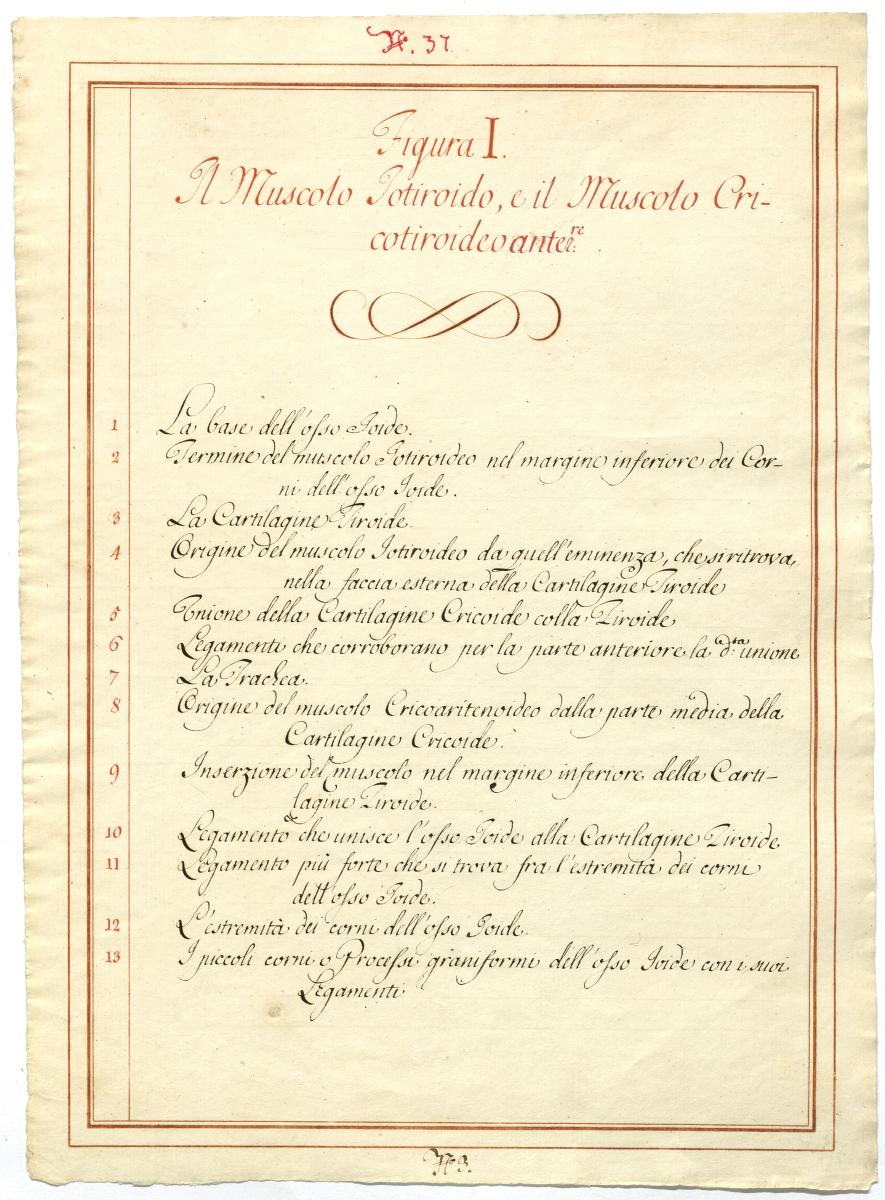 N.º 37.
Figura I.
Il Muscolo Jotiroido, e il Muscolo Cri-
cotiroideo anter.re
1 La base dell'osso Joide.
2 Termine del muscolo Jotiroideo nel margine inferiore dei Cor-
ni dell'osso Joide.
3 La Cartilagine Tiroide.
4 Origine del muscolo Jotiroideo da quell'eminenza, che si ritrova
nella faccia esterna della Cartilagine Tiroide
5 Unione della Cartilagine Cricoide colla Tiroide
6 Legamenti che corroborano per la parte anteriore la d.ta unione
7 La Trachea.
8 Origine del muscolo Cricoaritenoideo dalla parte media della
Cartilagine Cricoide.
9 Inserzione del muscolo nel margine inferiore della Carti-
lagine Tiroide.
10 Legamento che unisce l'osso Joide alla Cartilagine Tiroide
11 Legamento più forte che si trova fra l'estremità dei corni
dell'osso Joide.
12 L'estremità dei corni dell'osso Joide.
13 I piccoli corni o Processi graniformi dell'osso Joide con i suoi
Legamenti
Nº 3.